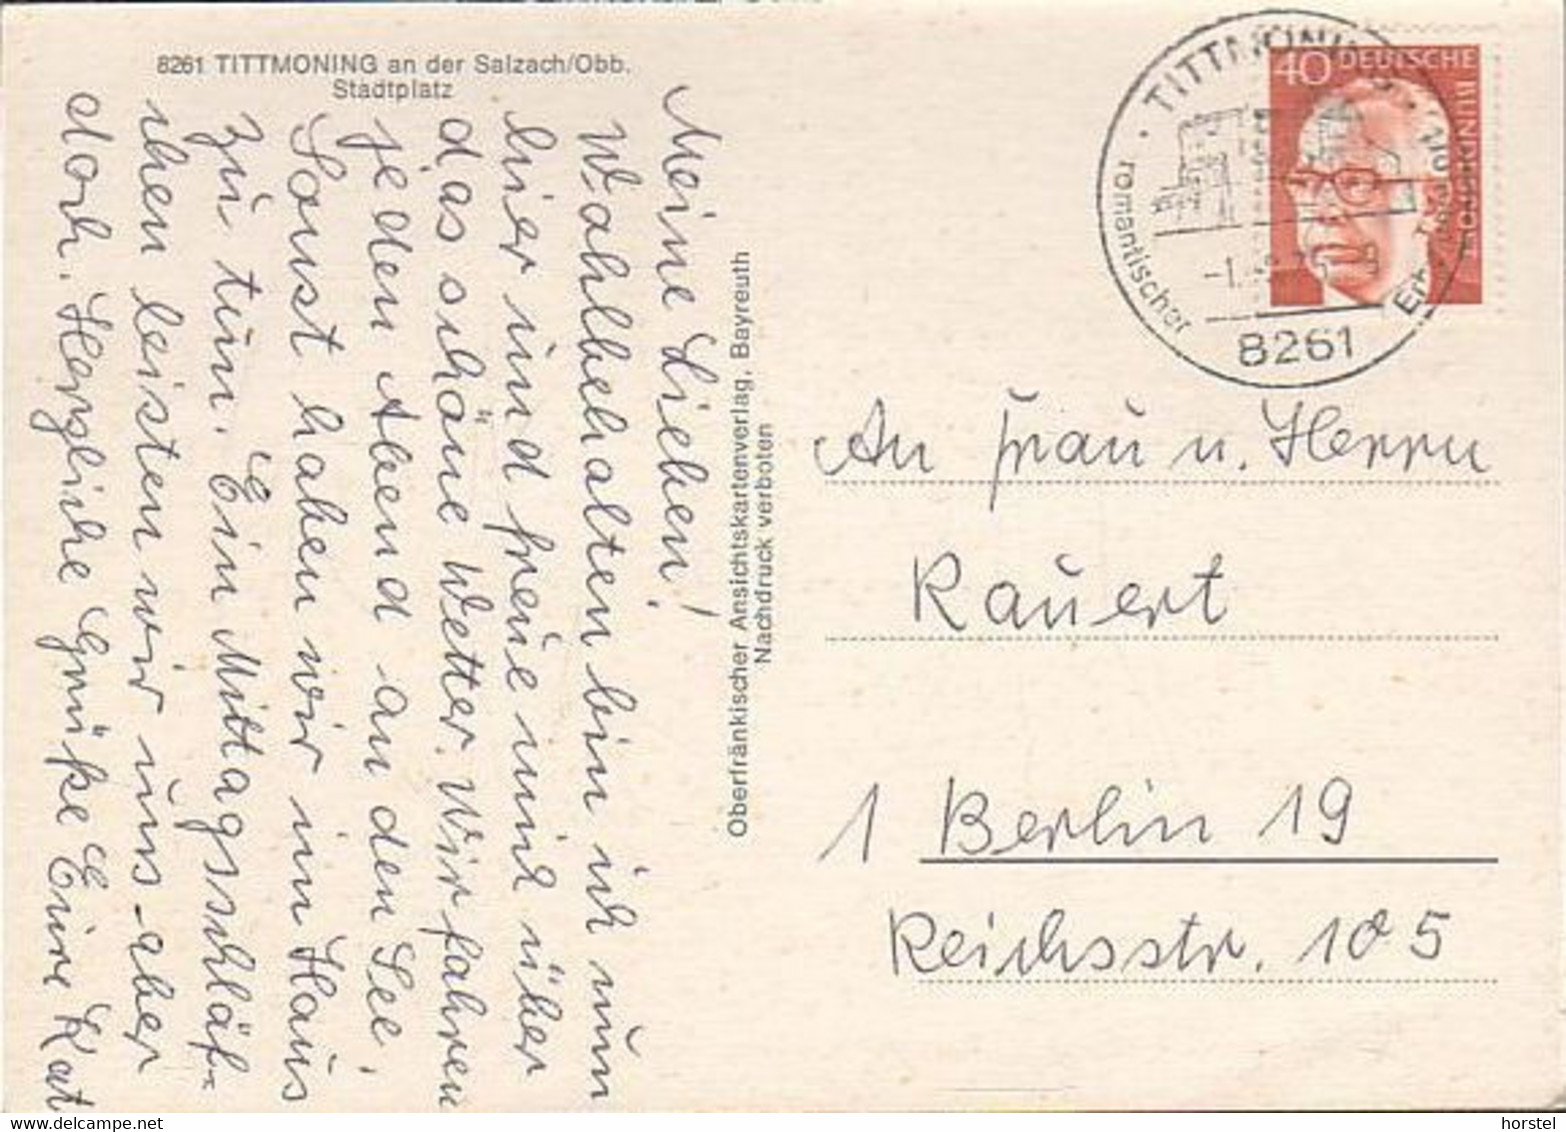 8261 TITTMONING an der Salzach/Obb.
Stadtplatz
Meine Lieben!
Wohlbehalten bin ich nun
hier und freue mich über
das schöne Wetter. Wir fahren
jeden Abend an den See.
Sonst haben wir im Haus
zu tun. Ein Mittagsschläf-
chen leisten wir uns aber
doch. Herzliche Grüße Eure Kat
Oberfränkischer Ansichtskartenverlag, Bayreuth
Nachdruck verboten
TITTMONING
romantischer
8261
40 DEUTSCHE
BUNDESPOST
An Frau u. Herrn
Rauert
1 Berlin 19
Reichsstr. 105
www.delcampe.net
horstel